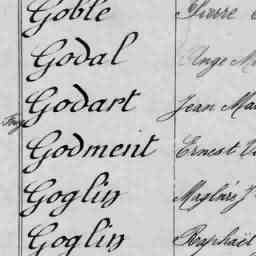 Goblé Pierre
Godal Ange M
Godart Jean Mar
Godment Ernest V
Goglin
Goglin Raphaël